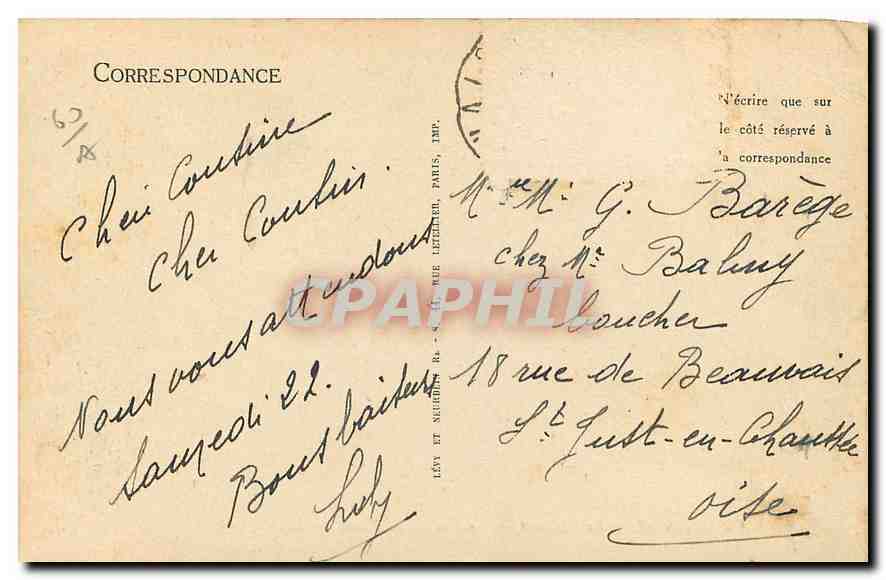 CORRESPONDANCE
N'écrire que sur
le côté réservé à
la correspondance
Cheri Cousine
Cher Cousin.
Nous vous attendons
Samedi 22.
Bons baisers
LÉVY ET NEURDEIN RÉUNIS, 44, RUE LETELLIER, PARIS, IMP.
Mr Me G. Barège
chez Mr Baluy
boucher
18 rue de Beauvais
St Just-en-Chaussée
Oise
CPAPHIL